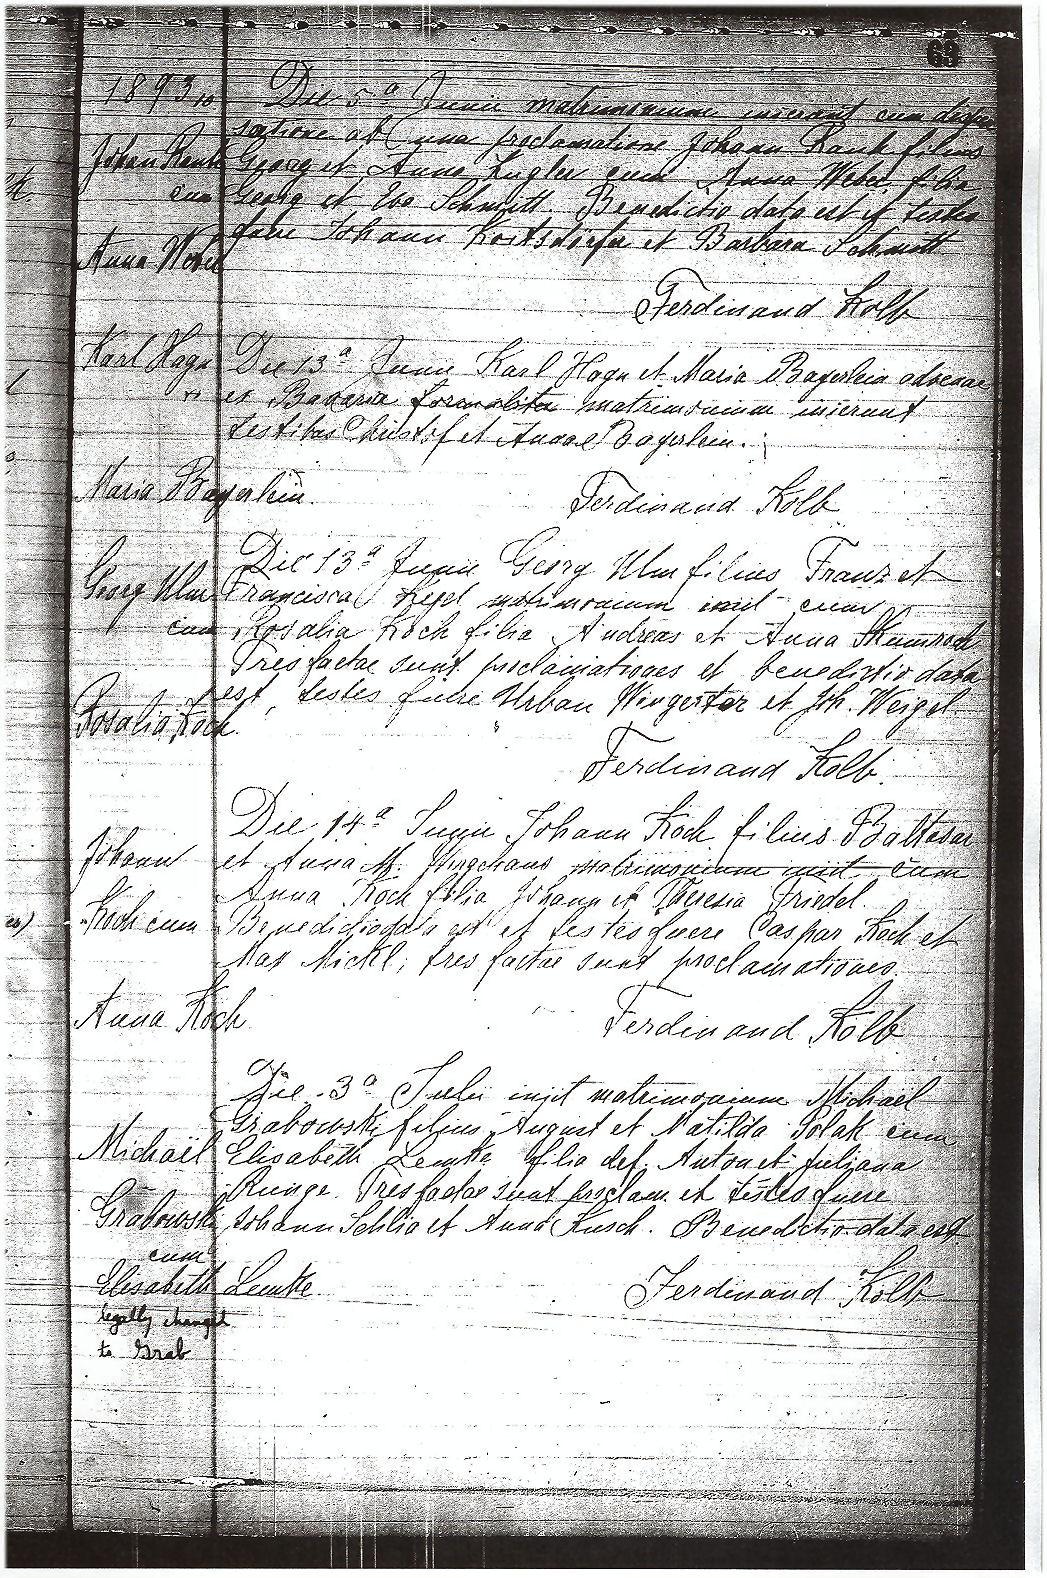 63
1893
Die 5a Junii matrimonium inierunt cum dispen
satione ab una proclamatione Johann Rauh filius
Johan Rauh
Georg et Anna Kugler cum Anna Weber filia
cum
Georg et Eva Schmitt. Benedictio data est et testes
fuere Johann et Barbara Schmitt
Anna Weber
Ferdinand Kolb
Karl Hagn
Die 13a Junii Karl Hagn et Maria Bayerlein advenae
et Bavaria matrimonium inierunt
testibus Christof et Annae Bayerlein.
Maria Bayerlein.
Ferdinand Kolb
Die 13a Junii Georg Ulm filius Franz et
Georg Ulm
Francisca matrimonium iniit cum
cum
Rosalia Koch filia Andreas et Anna
Tres factae sunt proclamationes et benedictio data
est, testes fuere Urban Wingerter et Joh. Weigel.
Rosalia Koch.
Ferdinand Kolb.
Die 14a Junii Johann Koch filius Baltasar
Johann
et Anna M. matrimonium iniit cum
Anna Koch filia Johann et Theresia Friedel.
Koch cum
Benedictio data est et testes fuere Caspar Koch et
Max Mickl; tres factae sunt proclamationes.
Anna Koch
Ferdinand Kolb
Die 3a Julii iniit matrimonium Michaël
Grabowski filius August et Matilda Polak cum
Michaël
Elisabeth Lemke filia def. Anton et Juliana
Runge. Tres factae sunt proclam. et testes fuere
Grabowski
Johann Schlio et Anna Kusch. Benedictio data est
cum
Elisabeth Lemke
Ferdinand Kolb
legally changed
to Grab